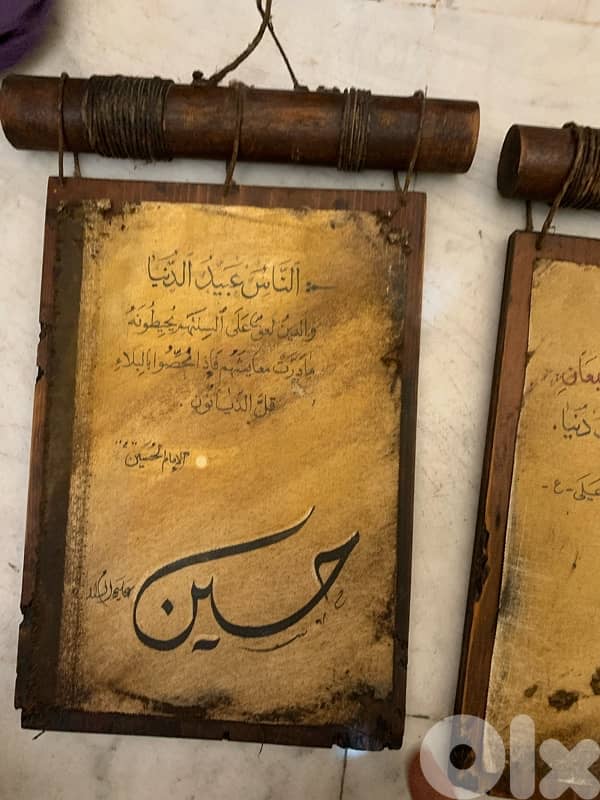 اَلنّاسُ عَبيدُ الدُنْيا
والدينُ لعقٌ عَلَى ألسِنَتِهِم يُحيطُونَهُ
مادَرَّتْ معايشهم فَإِذا مُحِّصُوا بِالبَلاءِ
قَلَّ الدَّيّانُونَ .
الإمام الحُسَين "ع"
حسين
دُنيا.
علي -ع-
olx